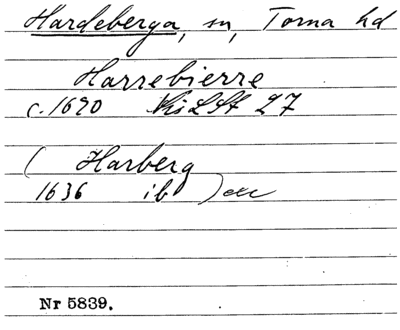 Hardeberga, sn, Torna hd
Harrebierre
c. 1690 KiLSt 27
( Harberg
1636 ib )
Nr 5839.